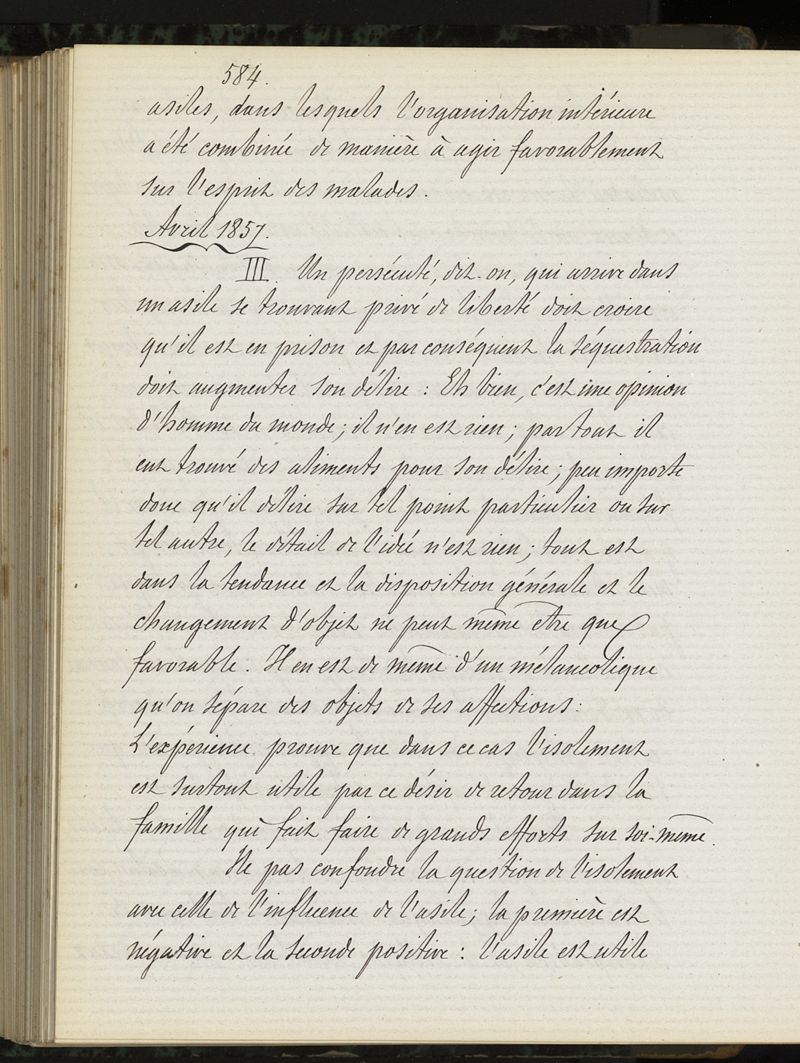 584.
asiles, dans lesquels l'organisation intérieure
a été combinée de manière à agir favorablement
sur l'esprit des malades.
Avril 1857.
III. Un persécuté, dit-on, qui arrive dans
un asile se trouvant privé de liberté doit croire
qu'il est en prison et par conséquent la séquestration
doit augmenter son délire : Eh bien, c'est une opinion
d'homme du monde ; il n'en est rien ; partout il
eut trouvé des aliments pour son délire ; peu importe
donc qu'il délire sur tel point particulier ou sur
tel autre, le détail de l'idée n'est rien ; tout est
dans la tendance et la disposition générale et le
changement d'objet ne peut même être que
favorable. Il en est de même d'un mélancolique
qu'on sépare des objets de ses affections :
L'expérience prouve que dans ce cas l'isolement
est surtout utile par ce désir de retour dans la
famille qui fait faire de grands efforts sur soi-même.
Ne pas confondre la question de l'isolement
avec celle de l'influence de l'asile ; la première est
négative et la seconde positive : l'asile est utile